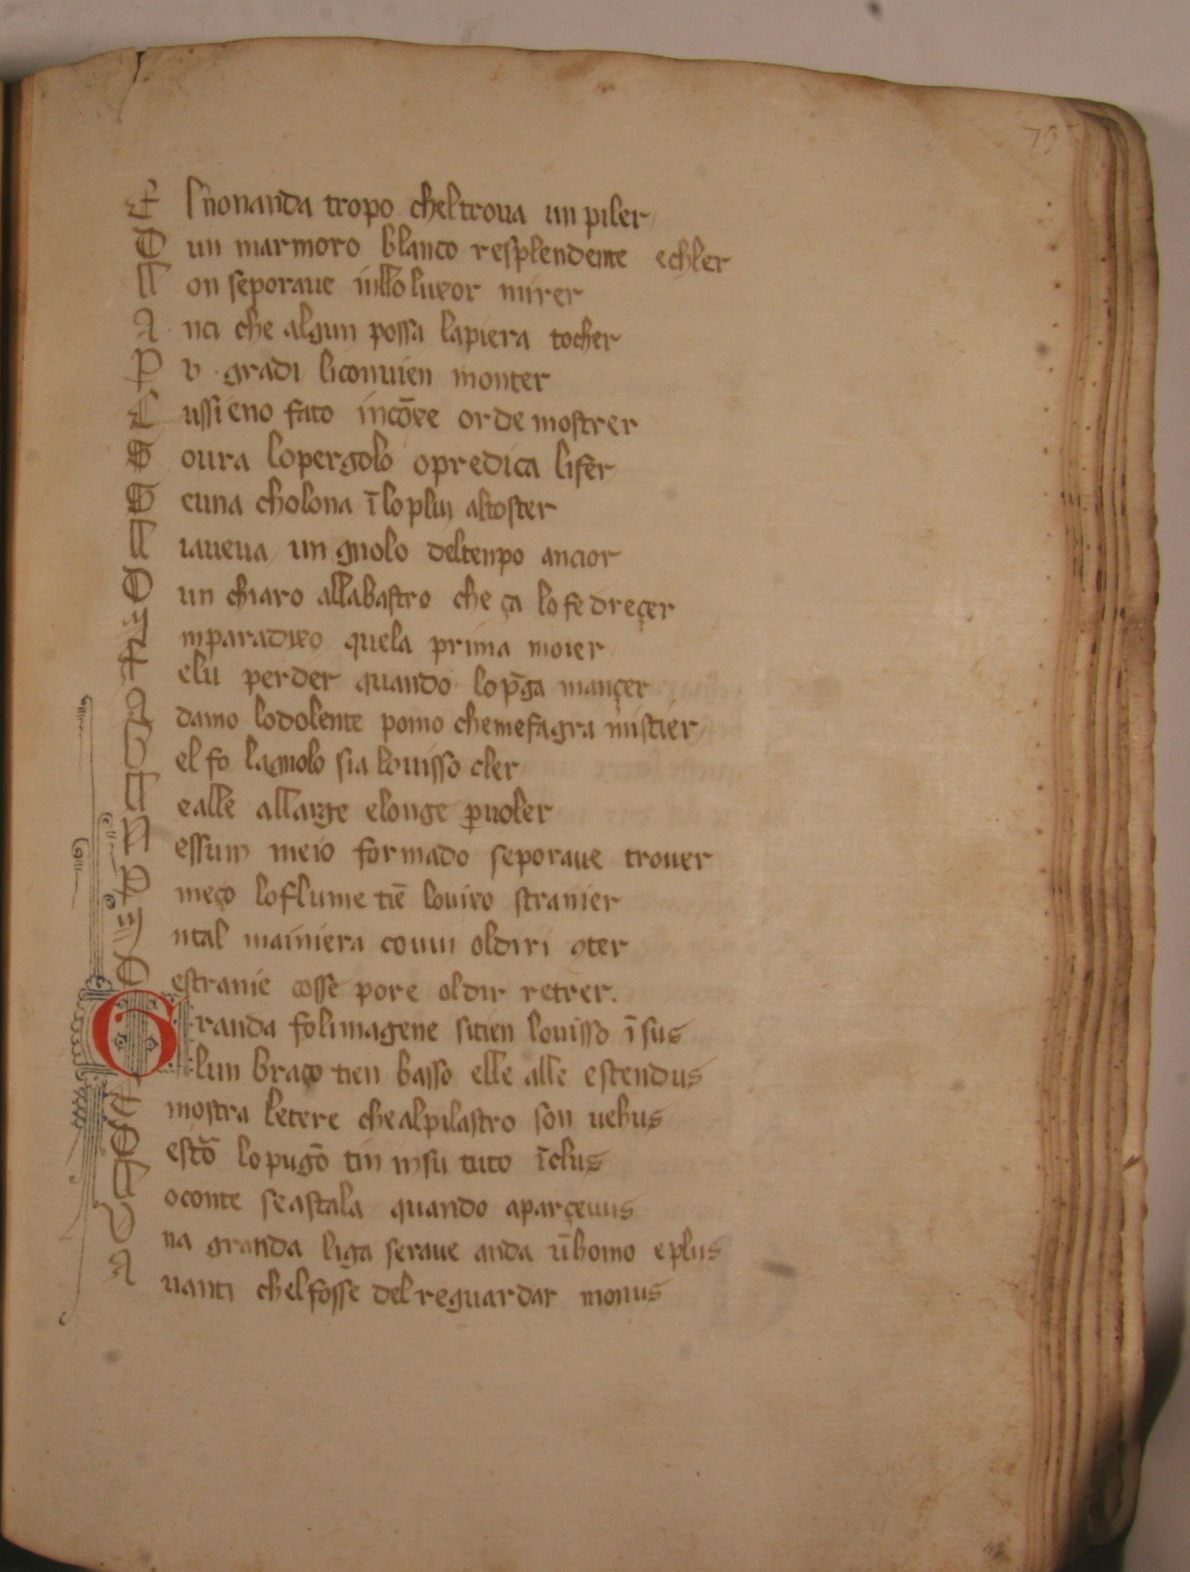 75
E l n̄onanda tropo cheltroua un piler
D un marmoro blanco resplendente echler
N on seporaue in llo luxor mirer
A nci che algun possa lapiera tocher
P u gradi liconuien monter
C ussi eno fato incōxe orde mostrer
S oura lopergolo opredica lifer
S euna cholona ī lo plui altoster
L iaueua un gnolo deltenpo ancior
D un chiaro allabastro che ça lo fe dreçer
I nparadixo quela prima moier
F elu perder quando lop̄ga mançer
A damo lodolente pomo chemefagra mistier
B el fo lagnolo sia louisso cler
L ealle allarge elonge ꝑuoler
N essum meio formado seporaue trouer
P meço loflume tiē louixo stranier
I ntal mainiera comui oldiri ꝯter
D estranie cosse pore oldir retrer.
Granda folimagene sitien louisso ī sus
Elun braço tien basso elle alle estendus
E mostra letere chealpilastro son uehus
D estō lo pugō tin insu tuto īclus
L oconte seastala quando aparçeuus
V na granda liga seraue anda ūhomo eplus
A uanti chelfosse delreguardar monus